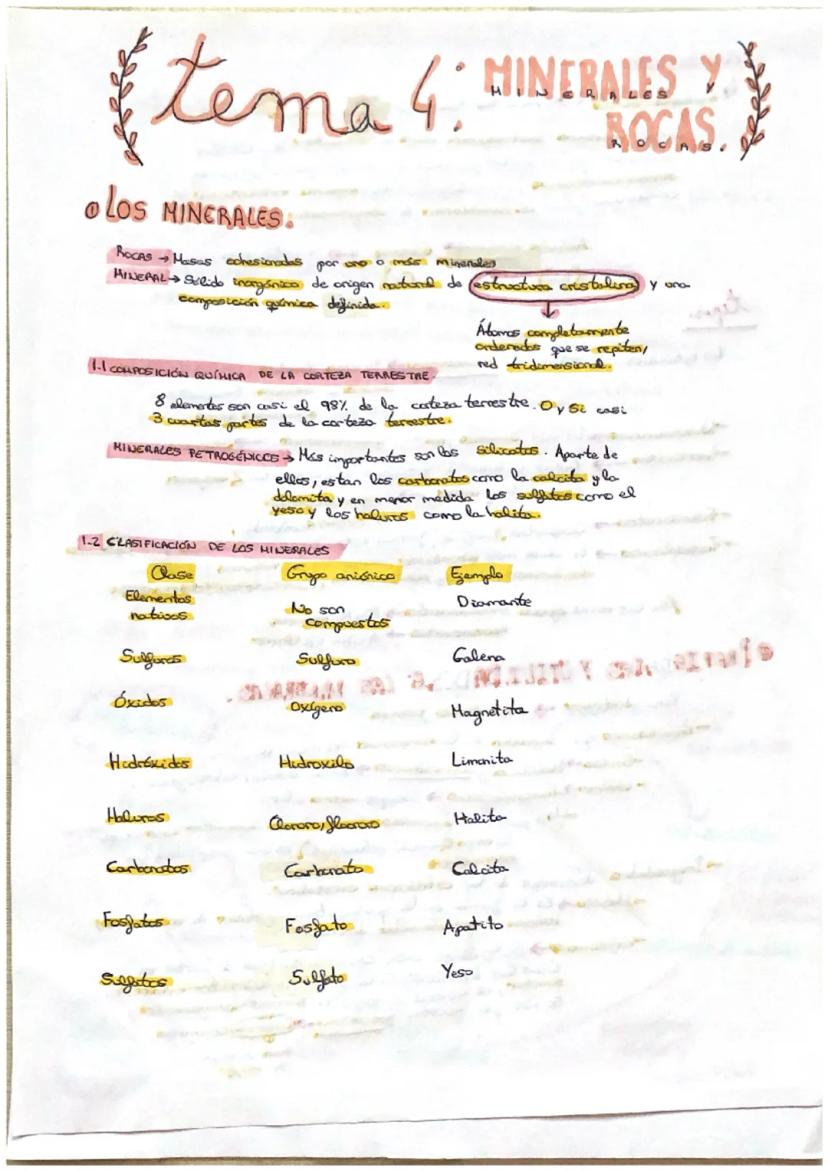 tema 4: MINERALES Y
MINERALES
ROCAS.
ROCAS.
LOS MINERALES.
ROCAS → Masas cohesionadas por uno o más minerales
MINERAL → Sólido inorgánico de origen natural de estructura cristalina y una
composición química definida.
Átomos completamente
ordenados que se repiten,
red tridimensional.
1.1 COMPOSICIÓN QUÍMICA DE LA CORTEZA TERRESTRE.
8 elementos son casi el 98% de la corteza terrestre. O y Si casi
3 cuartas partes de la corteza terrestre.
MINERALES PETROGÉNICOS → Más importantes son los silicatos. Aparte de
ellos, estan los carbonatos como la calcita y la
dolomita y en menor medida los sulfatos como el
yeso y los haluros como la halita.
1.2 CLASIFICACIÓN DE LOS MINERALES
Clase Grupo aniónico Ejemplo
Elementos No son Diamante
nativos compuestos
Sulfuros Sulfuro Galena
Óxidos Oxígeno Magnetita
Hidróxidos Hidroxilo Limonita
Haluros Cloruro, fluoruro Halita
Carbonatos Carbonato Calcita
Fosfatos Fosfato Apatito
Sulfatos Sulfato Yeso